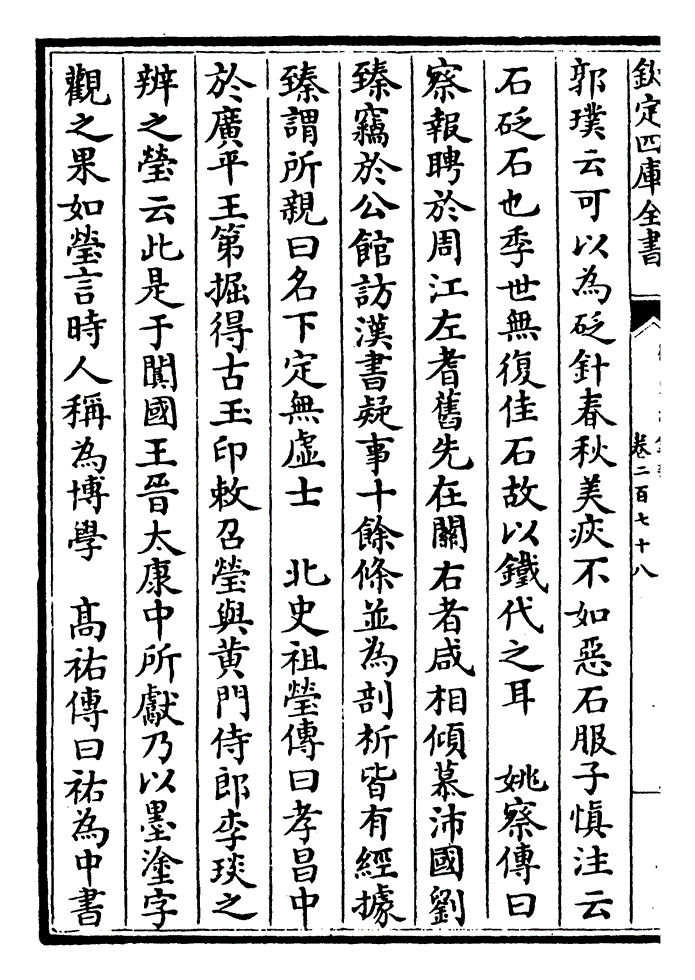 欽定四庫全書
卷二百七十八
郭璞云可以為砭針春秋美疢不如惡石服子慎注云
石砭石也季世無復佳石故以鐵代之耳　姚察傳曰
察報聘於周江左耆舊先在關右者咸相傾慕沛國劉
臻竊於公館訪漢書疑事十餘條並為剖析皆有經據
臻謂所親曰名下定無虚士　北史祖瑩傳曰孝昌中
於廣平王第掘得古玉印敕召瑩與黄門侍郎李琰之
辨之瑩云此是于闐國王晉太康中所獻乃以墨塗字
觀之果如瑩言時人稱為博學　髙祐傳曰祐為中書